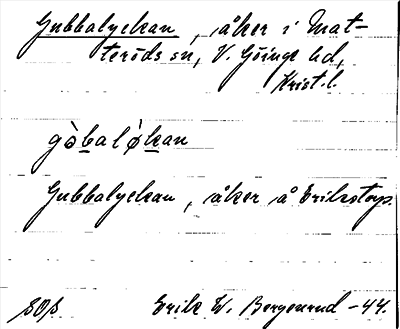 Gubbalyckan, åker i Mat-
teröds sn, V. Göinge hd,
Krist. l.
gòbaløkan
Gubbalyckan, åker å Erikstorp.
Erik W. Bergenrud -44.